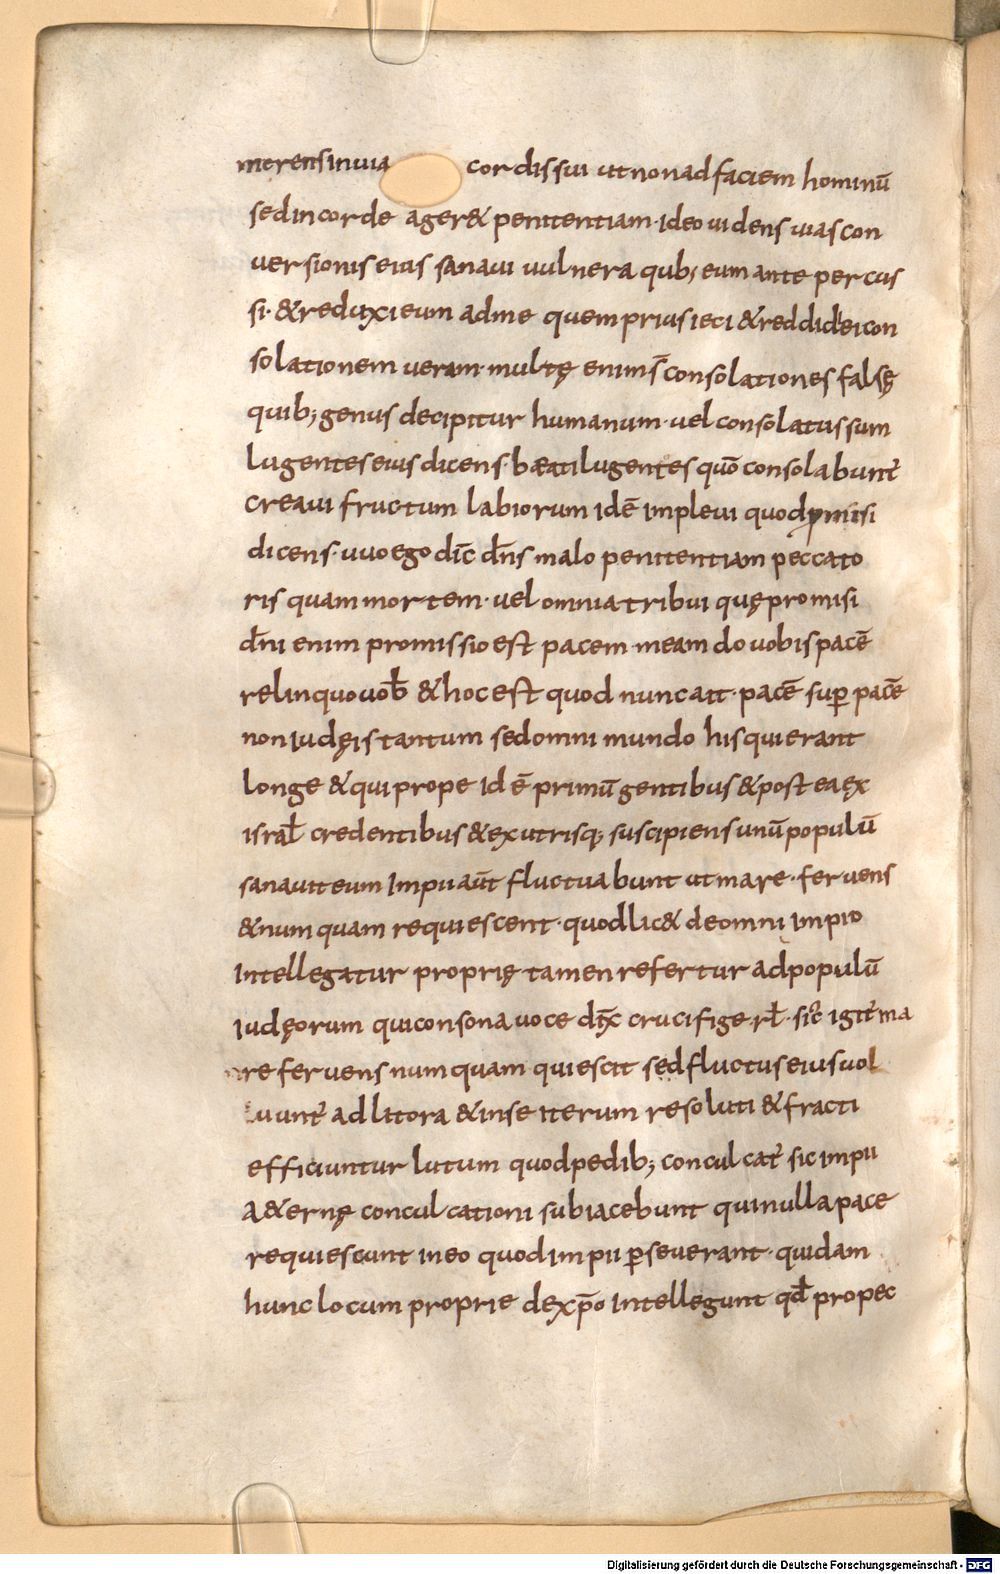 merensinuia cordissui utnonadfaciem hominū
sedincorde ager& penitentiam · ideo uidens uiascon
uersionis eius sanaui uulnera qub; eum ante percus
si · &reduxieum adme quemprius ieci &reddidi eicon
solationem ueram · multę enim s̄ consolationes falsę
quib; genus decipitur humanum · uel consolatus sum
lugentes eius dicens · bæati lugentes quō consolabunt̄
creaui fructum labiorum idē impleui quod promisi
dicens · uiuo ego dic̄ dn̄s malo penitentiam peccato
ris quam mortem · uel omnia tribui quę promisi
dn̄i enim promissio est pacem meam do uobis pacē
relinquo uob̄ & hoc est quod nunc ait · pacē sup̱ pacē
non iudęis tantum sed omni mundo his qui erant
longe & qui prope id ē primū gentibus & post ea ex
isrl̄ credentibus & ex utrisq; suscipiens unū populū
sanauit eum Impii aūt fluctuabunt ut mare · feruens
& num quam requiescent · quod lic& de omni impio
Intellegatur proprię tamen refertur ad populū
iudęorum qui consona uoce dix̄ crucifige · rl̄ · sic̄ igit̄ ma
re feruens num quam quiescit sed fluctus eius uol
uunt̄ ad litora & inse iterum resoluti & fracti
efficiuntur lutum quod pedib; conculcat̄ sic impii
A&ernę conculcationi subiacebunt qui nulla pace
requiescunt in eo quod impii p̱seuerant · quidam
hunc locum proprie de xp̄o Intellegunt qd̄ propec
Digitalisierung gefördert durch die Deutsche Forschungsgemeinschaft - DFG